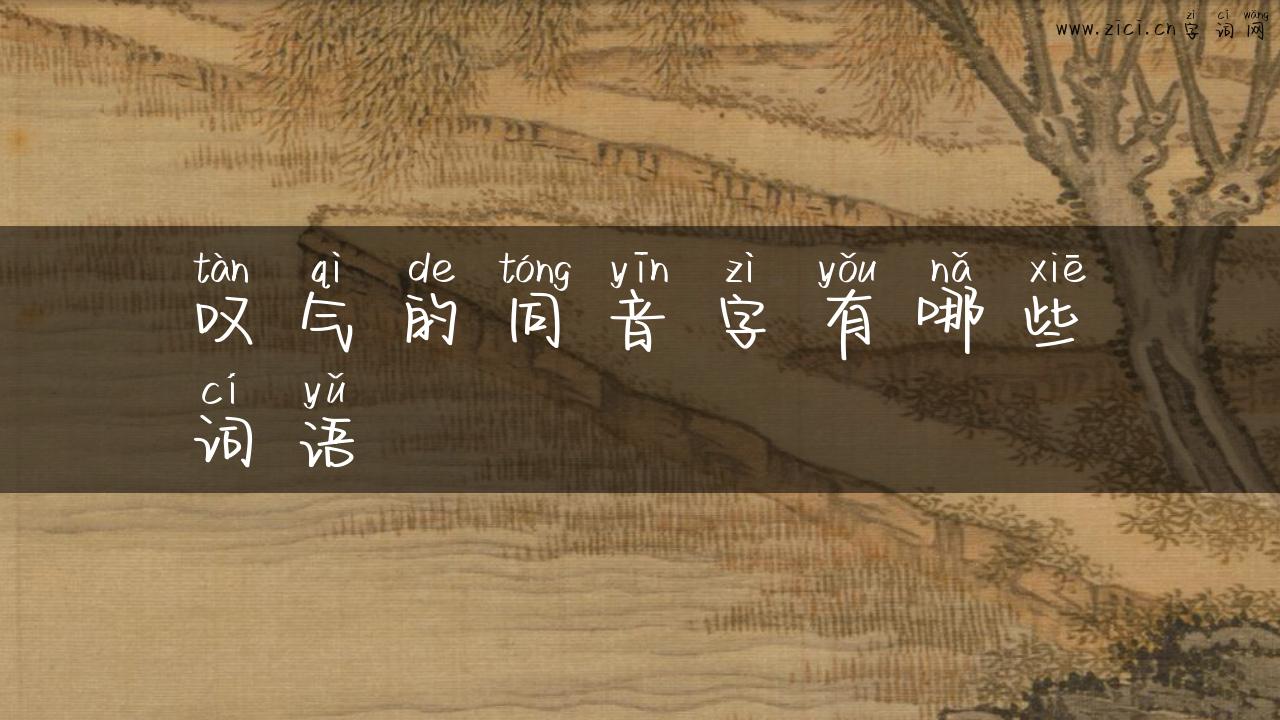 zì cí wǎng
www.zici.cn字词网
tàn qì de tóng yīn zì yǒu nǎ xiē
叹气的同音字有哪些
cí yǔ
词语